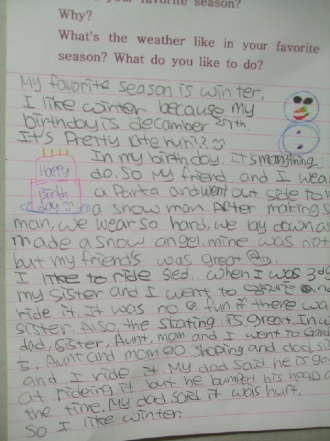 your favorite season?
Why?
What's the weather like in your favorite
season? What do you like to do?
My favorite season is winter.
I like winter because my
birthday is december 27th
It's Pretty late huh??
In my birthday. It's
do. So My friend and I wear
a Parka and went out side to
a snow man. After making
man, we wear so hard, we lay down
made a snow angel. mine was not
but my friend's was great
I like to ride sled. when I was
my sister and I went to
ride it. It was no fun if there
sister. Also, the skating is great. In
dad, sister, Aunt, mom and I went to
Aunt and mom go shoping and dad
and I ride it. My dad said he is
at rideing it but he
the time. My dad said it was hurt.
So I like winter.
Happy
Birth
day